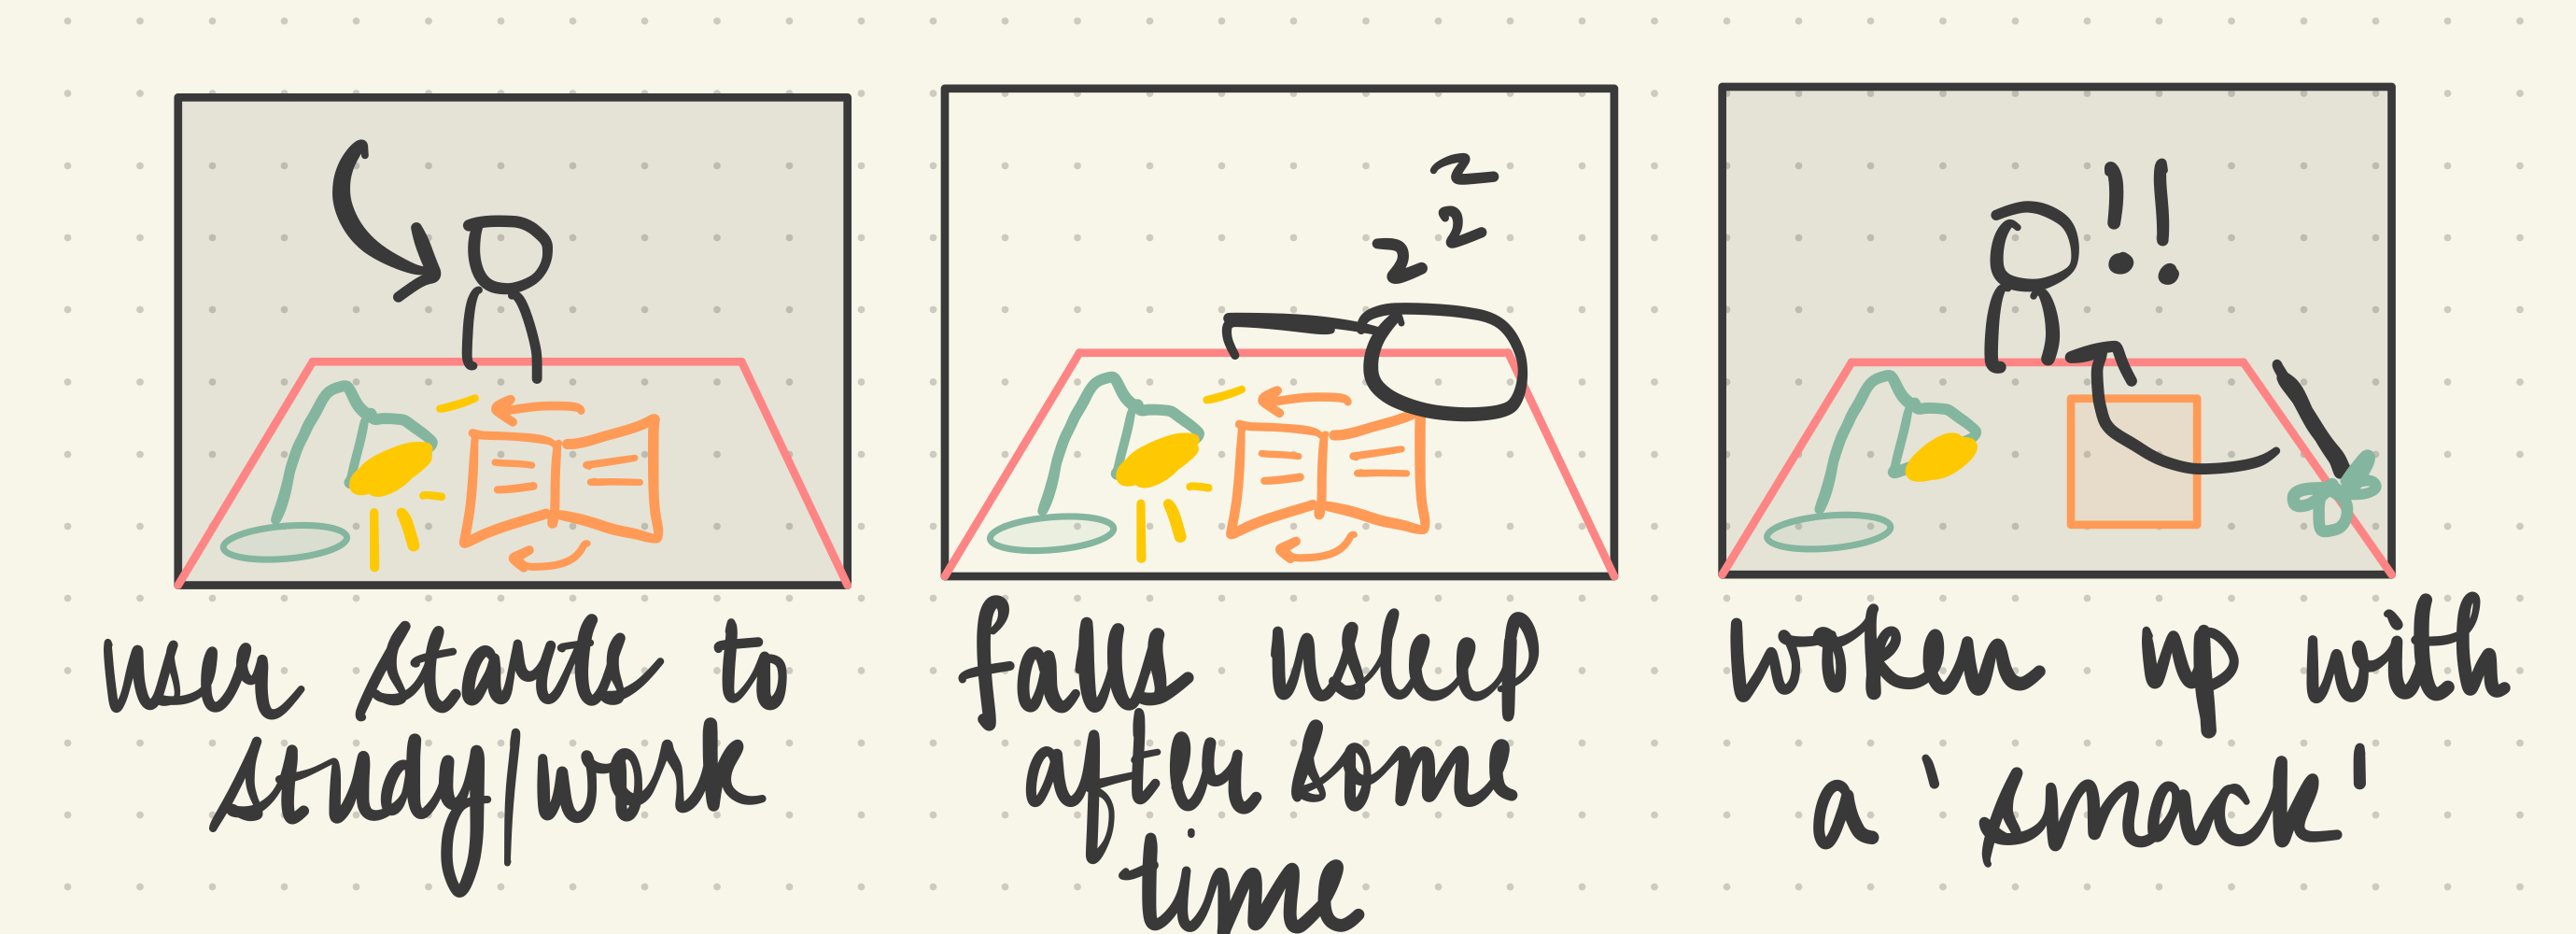 user starts to
study/work
z
z
z
falls asleep
after some
time
!!
woken up with
a 'smack'